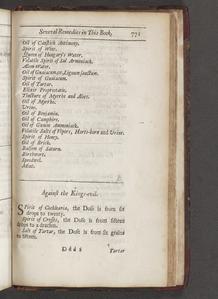 Several Remedies in This Book, 771
Oil of Caustick Antimony.
Spirit of Wine.
Queen of Hungary's Water.
Volatile Spirit of Sal Armoniack.
Alom-Water.
Oil of Guaiacum, or, Lignum sanctum.
Spirit of Guaiacum.
Oil of Tartar.
Elixir Proprietatis.
Tincture of Myrrhe and Aloes.
Oil of Myrrhe.
Urine.
Oil of Benjamin.
Oil of Camphire.
Oil of Gumm Ammoniack.
Volatile Salts of Vipers, Harts-horn and Urine.
Spirit of Honey.
Oil of Brick.
Balsom of Saturn.
Birthwort.
Speedwel.
Mint.
Against the Kings-evil.
Spirit of Cochlearia, the Dose is from six
drops to twenty.
Spirit of Cresses, the Dose is from fifteen
drops to a drachm.
Salt of Tartar, the Dose is from six grains
to fifteen.
Ddd 2 Tartar